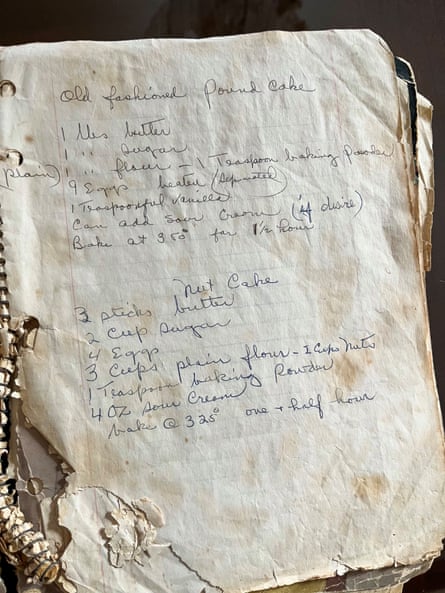 Old fashioned Pound Cake
1 lbs butter
1 " sugar
(plain) 1 " flour - 1 Teaspoon baking Powder
9 Eggs beaten (Seperated)
1 Teaspoonful vanilla
Can add Sour Cream (if desire)
Bake at 350° for 1½ hour
Nut Cake
sticks butter
2 Cup Sugar
4 Eggs
3 Cups plain flour - 1 Cups Nuts
1 Teaspoon baking Powder
4 oz sour Cream
bake @ 325° one + half hour